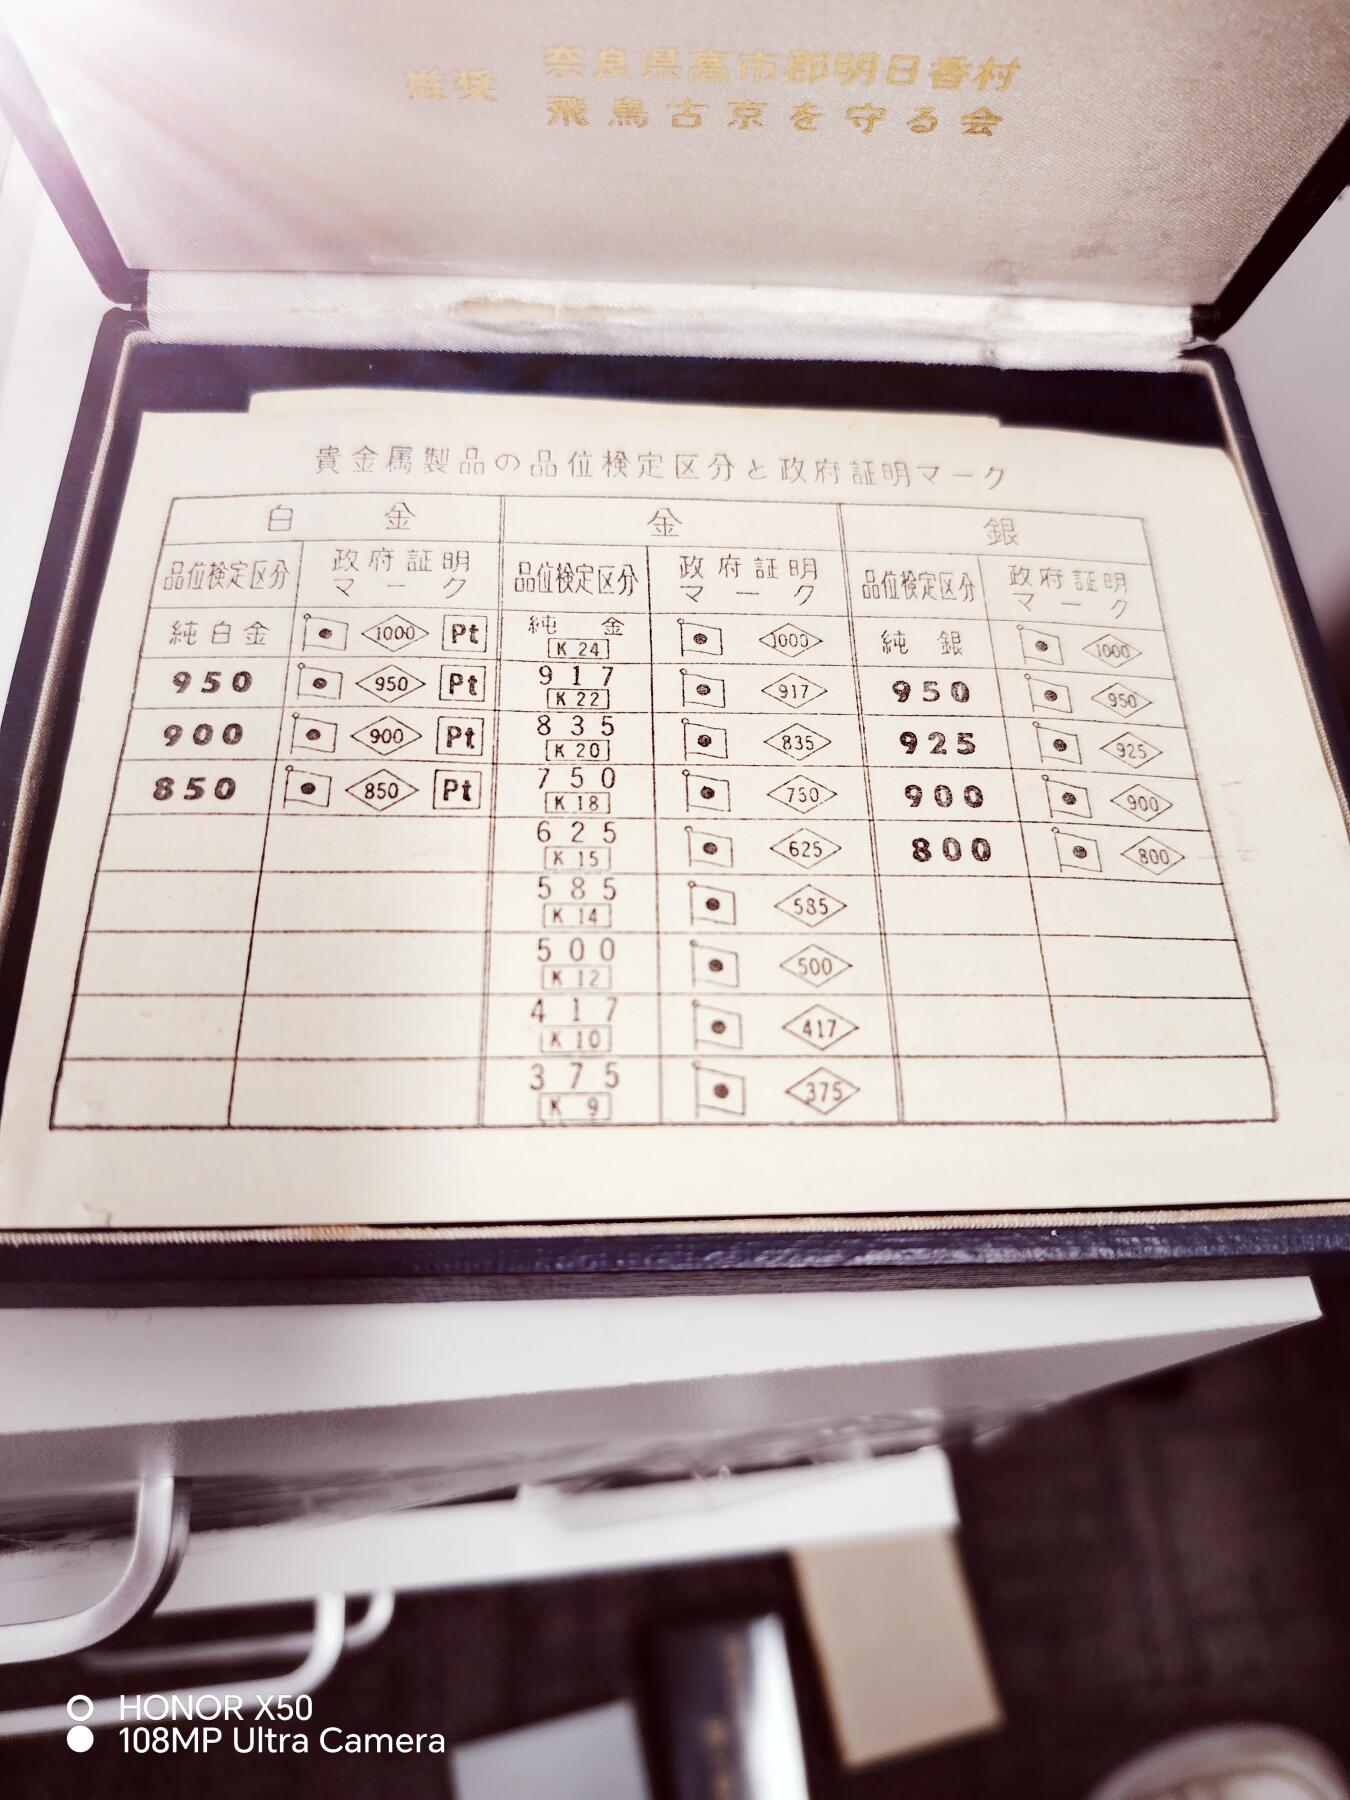 推奨 奈良県高市郡明日香村
飛鳥古京を守る会
貴金属製品の品位検定区分と政府証明マーク
白金 金 銀
品位検定区分 政府証明マーク 品位検定区分 政府証明マーク 品位検定区分 政府証明マーク
純白金 1000 Pt 純金 K 24 1000 純銀 1000
950 950 Pt 917 K 22 917 950 950
900 900 Pt 835 K 20 835 925 925
850 850 Pt 750 K 18 750 900 900
625 K 15 625 800 800
585 K 14 585
500 K 12 500
417 K 10 417
375 K 9 375
HONOR X50
108MP Ultra Camera